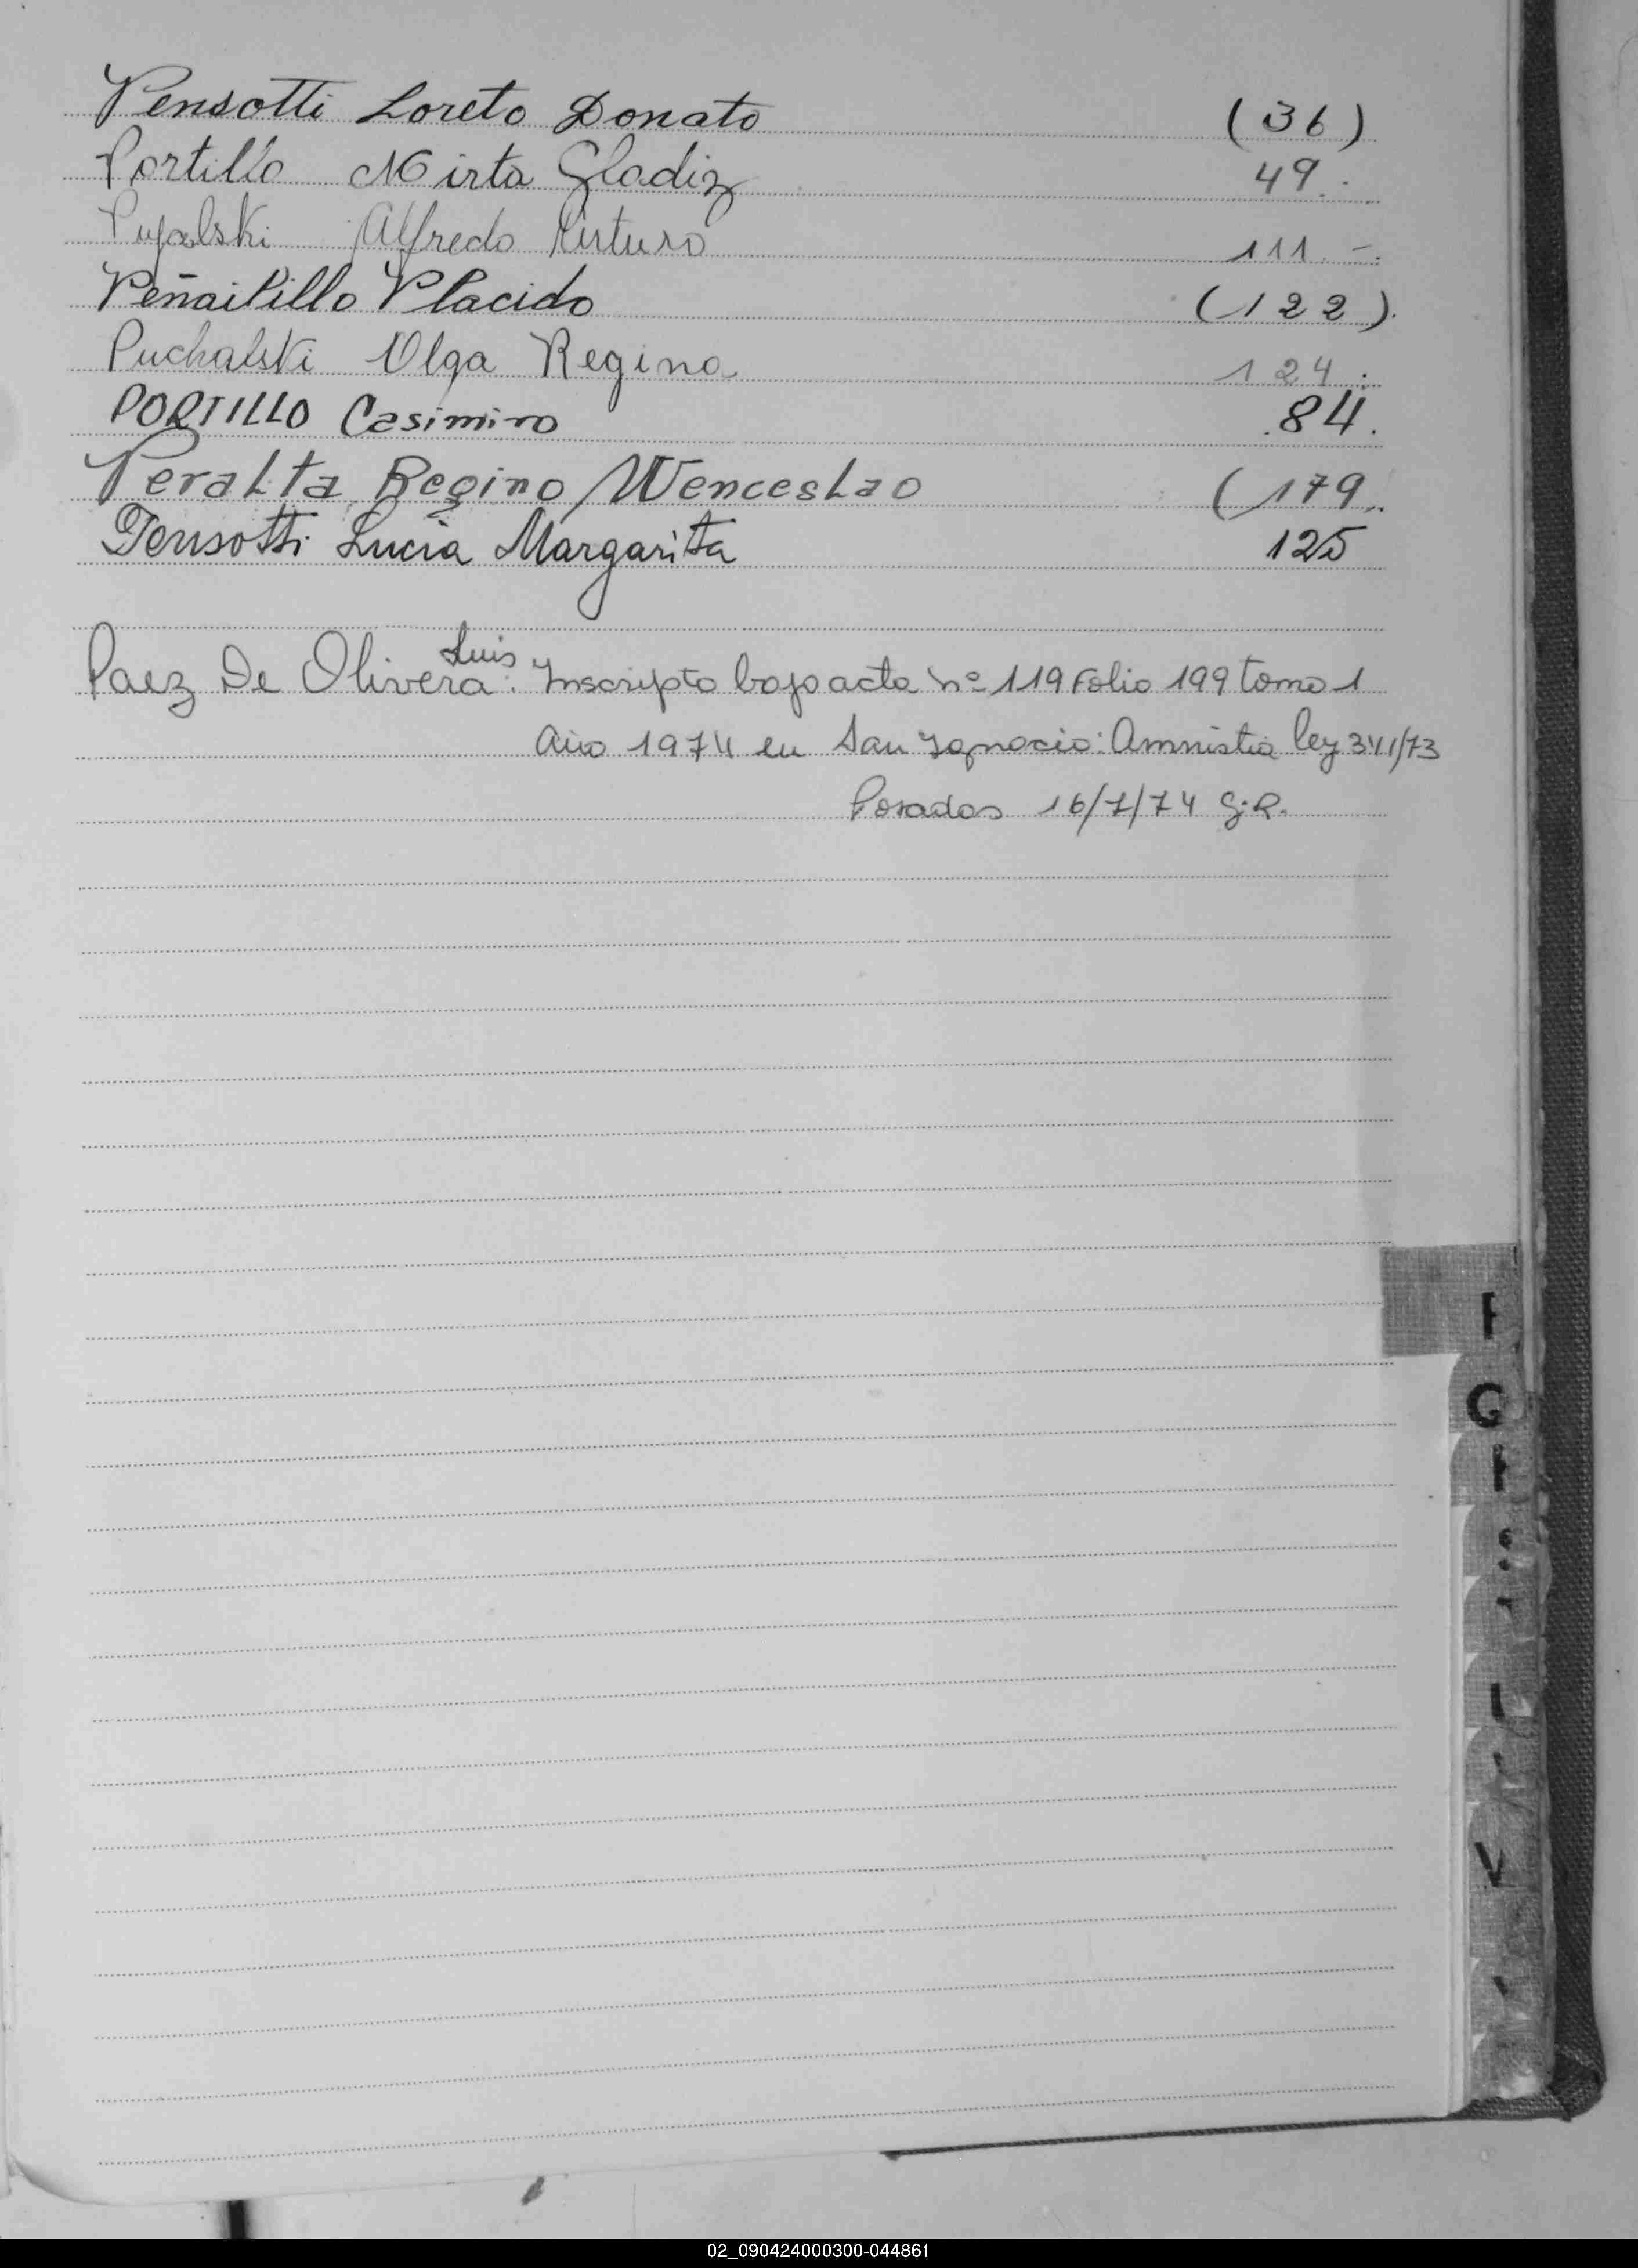 Pensotti Loreto Donato (36)
Portillo Mirta Gladiz 49.-
Alfredo Arturo 111.-
Peñailillo Placido (122).
Puchalski Olga Regina 124.
PORTILLO Casimiro 84.
Peralta Regino Wenceslao (179.
Pensotti Lucia Margarita 125
Paez De Olivera Luis: Inscripto bajo acta nº 119 Folio 199 tomo 1
año 1974 en San Ignacio: Amnistia ley 341/73
Posadas 16/7/74 G.R.
G
V
02_090424000300-044861